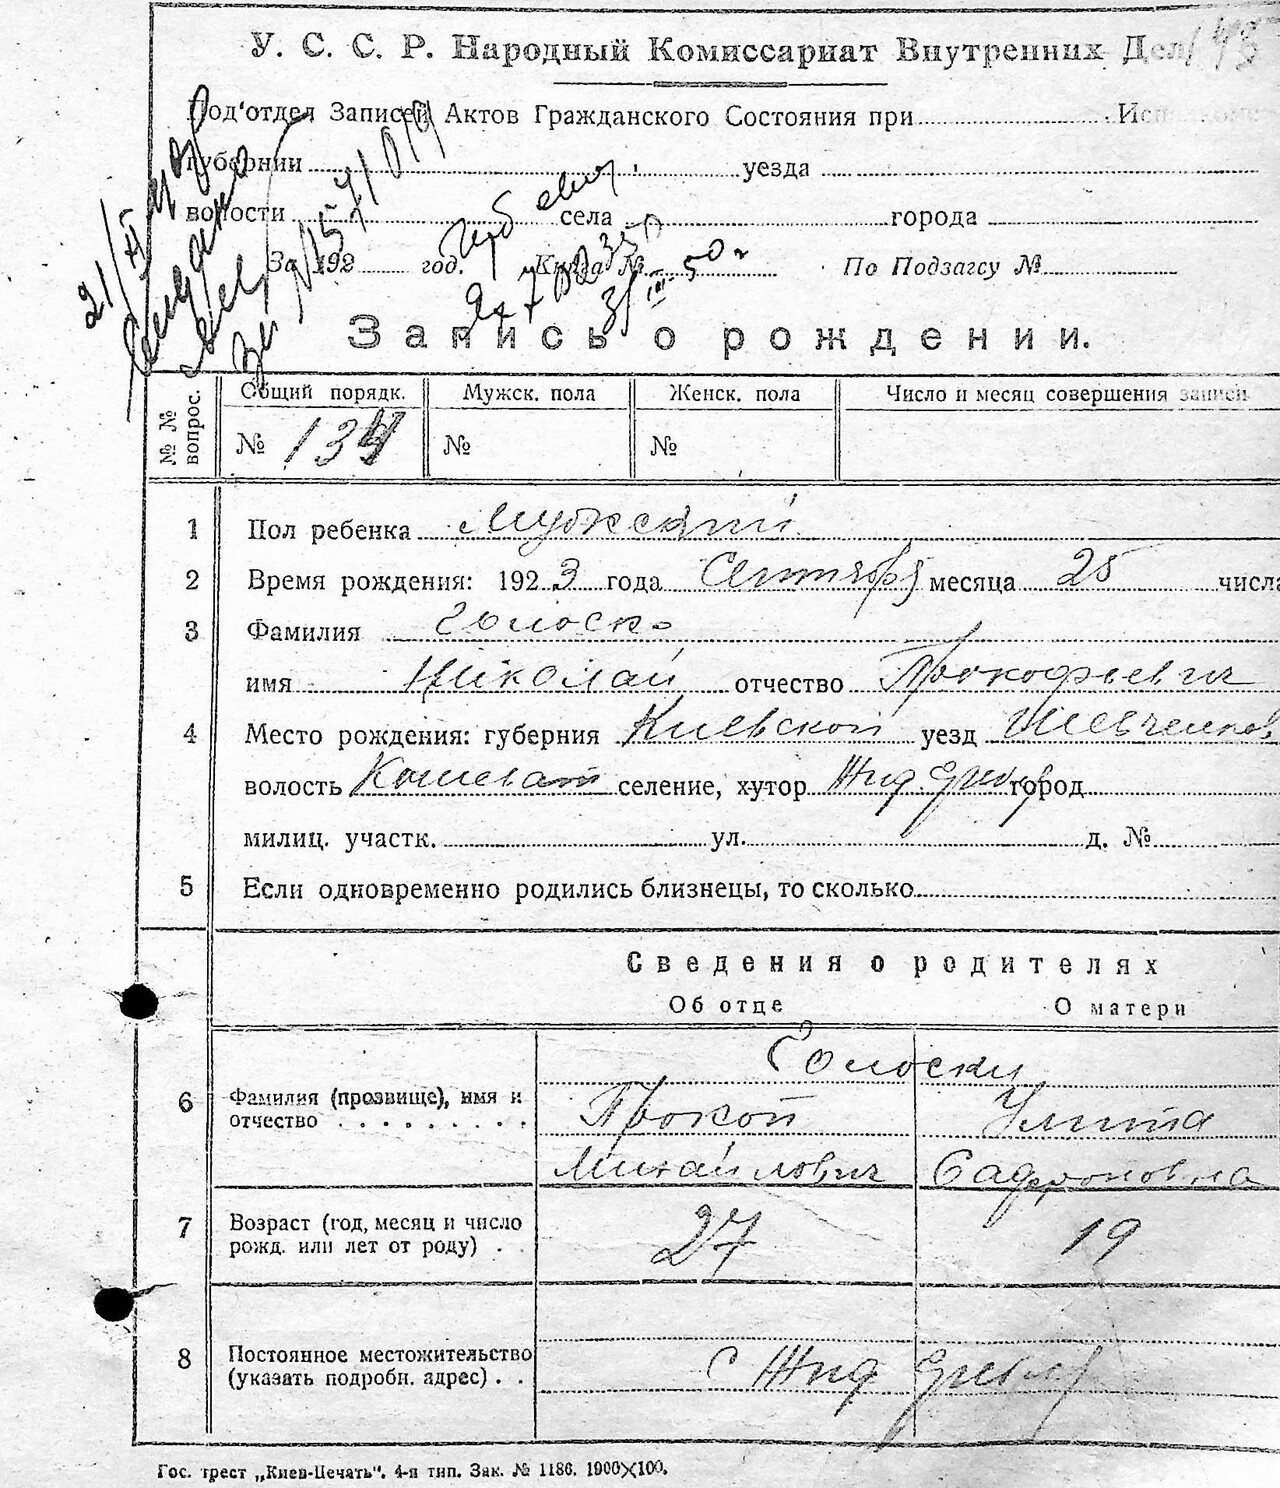 У. С. С. Р. Народный Комиссариат Внутренних Дел
Под'отдел Записей Актов Гражданского Состояния при Исполкоме
губернии уезда
волости села города
За 192 год. Книга № По Подзагсу №
Запись о рождении.
№ № вопрос. Общий порядк. Мужск. пола Женск. пола Число и месяц совершения записи
№ 134 № №
1 Пол ребенка Мужской
2 Время рождения: 1923 года Сентября месяца 25 числа
3 Фамилия Голоско
имя Николай отчество Прокофьевич
4 Место рождения: губерния Киевской уезд Шевченков
волость Кошеват селение, хутор Жид. Гребля город
милиц. участк. ул. д. №
5 Если одновременно родились близнецы, то сколько
Сведения о родителях
Об отце О матери
Голоски
6 Фамилия (прозвище), имя и Прокоп Улита
отчество Михайлович Сафроновна
7 Возраст (год, месяц и число 27 19
рожд. или лет от роду)
8 Постоянное местожительство с Жид Гребля
(указать подробн. адрес)
Гос. трест „Киев-Печать". 4-я тип. Зак. № 1186. 1900×100.